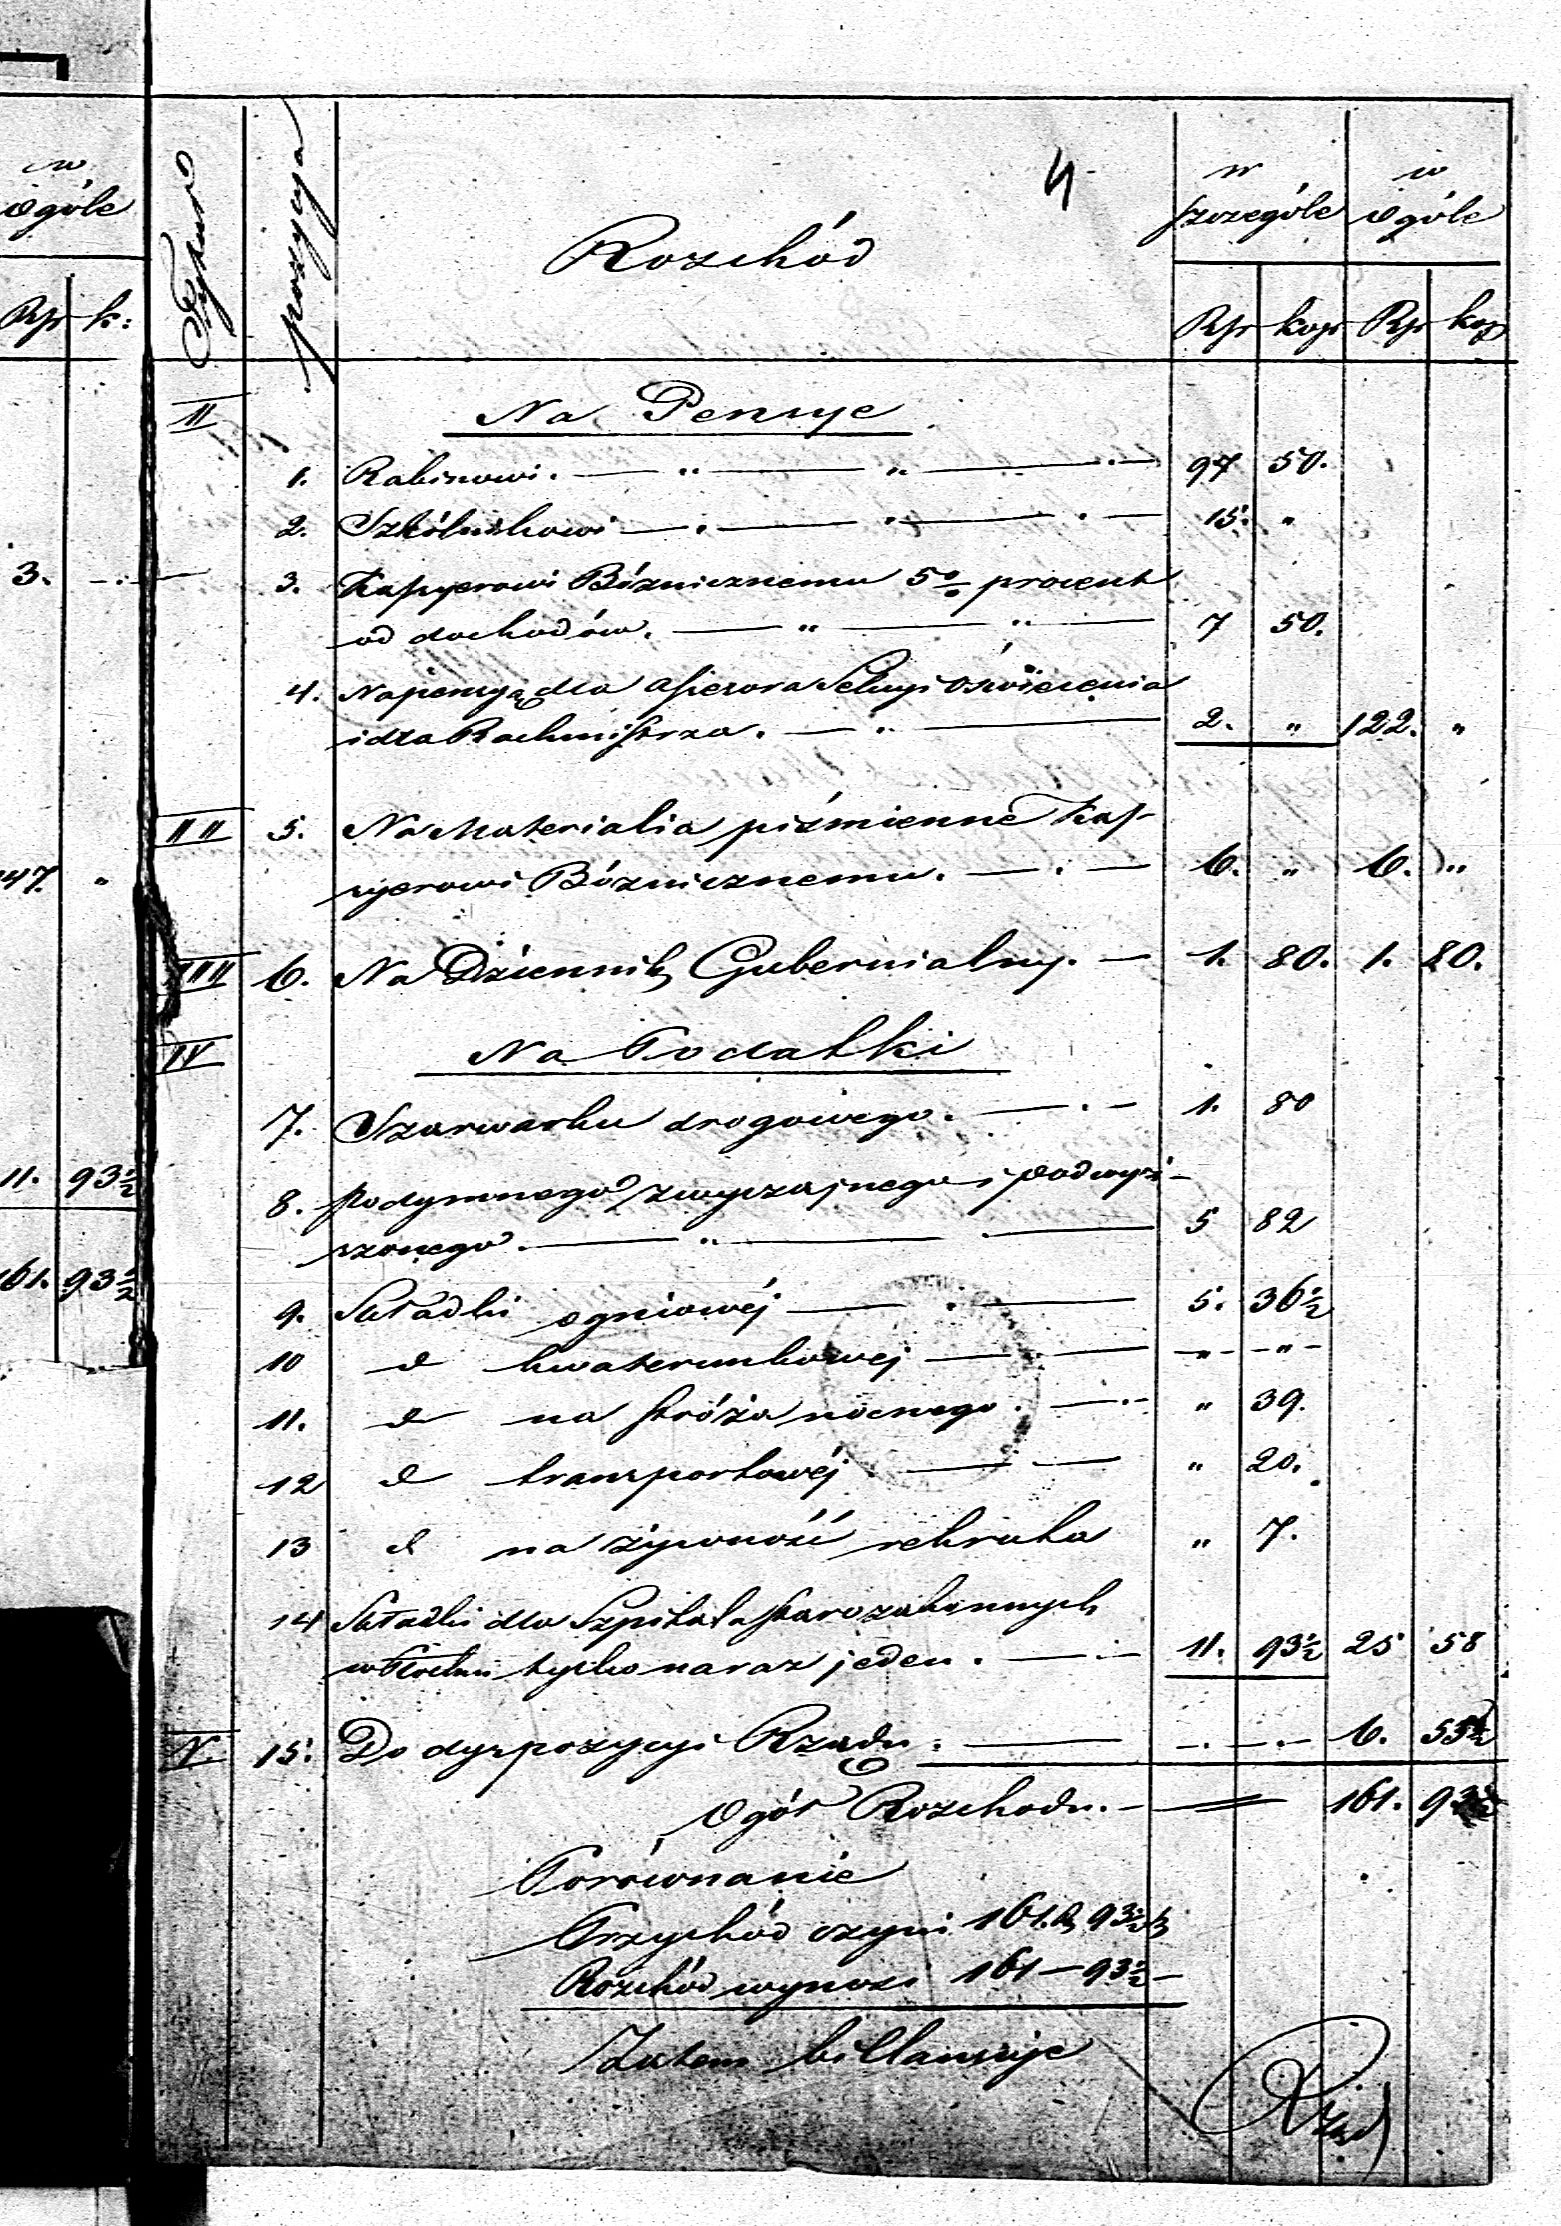 w
ogóle
Rsr k:
3. -
47. "
11. 93½
161. 93½
4
Tytuł pozycya Rozchód w szczególe w ogóle
Rsr kop Rsr kop
II Na Pensye
1. Rabinowi. — " — " — 97 50.
2. Szkólnikowi — " — " — 15. "
3. Kassyerowi Bóżnicznemu 5% procent
od dochodów. — " — " — 7 50.
4. Na pensyą dla Assesora Sekcyi Oświecenia
i dla Rachmistrza. — " — 2. " 122. "
II II 5. Na Materialia piśmienne Kas-
syerowi Bóżnicznemu. — . — 6. " 6. "
III II 6. Na Dziennik Gubernialny. — 1. 80. 1. 80.
IV Na Podatki
7. Szarwarku drogowego. — . — 1. 80
8. Podymnego zwyczajnego i podwyż-
szonego. — " — . — 5 82
9. Składki ogniowéj — . — 5. 36½
10 d kwaterunkowej — " - " -
11. d na stróża nocnego. — . — " 39.
12 d transportowéj — " 20.
13 d na żywność rekruta " 7.
14 Składki dla Szpitala starozakonnych
w Płocku tylko na raz jeden. — . — 11. 93½ 25 58
V. 15. Do dyspozycyi Rządu. — - . - . - 6. 55½
Ogół Rozchodu. — 161. 93½
Porównanie
Przychód czyni 161. R 93½ k
Rozchód wynosi 161 — 93½ —
Zatem billansuje
Rząd